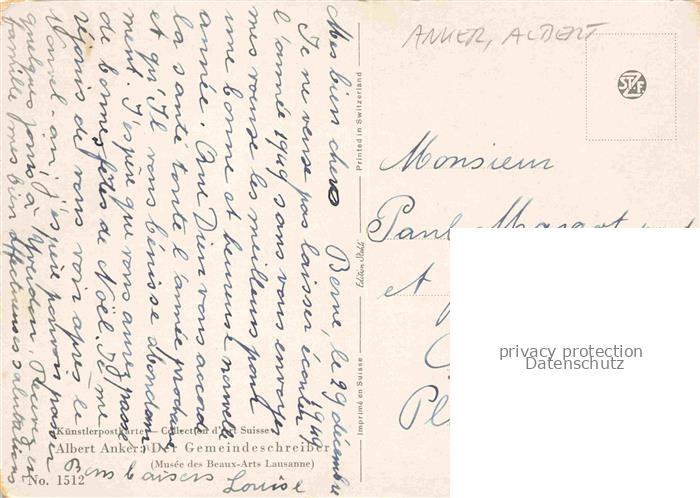 Berne, le 29 décembre
1949
Mes bien chers
Je ne veux pas laisser écouler
l'année 1949 sans vous envoyer
mes vœux les meilleurs pour
une bonne et heureuse nouvelle
année. Que Dieu vous accorde
la santé toute l'année prochaine
et qu'Il vous bénisse abondam
ment. J'espère que vous avez passé
de bonnes fêtes de Noël. Je me
réjouis de vous voir après le
Nouvel-an; j'espère pouvoir passer
quelques jours à Yverdon. Recevez en
famille mes bien affectueuses salutations
Bons baisers
Louise
Künstlerpostkarte — Collection d'Art Suisse
Albert Anker: Der Gemeindeschreiber
(Musée des Beaux-Arts Lausanne)
No. 1512
Imprimé en Suisse
Edition Stehli
Printed in Switzerland
ANKER, ALBERT
STZF
Monsieur
Paul Margot
et
privacy protection
Datenschutz